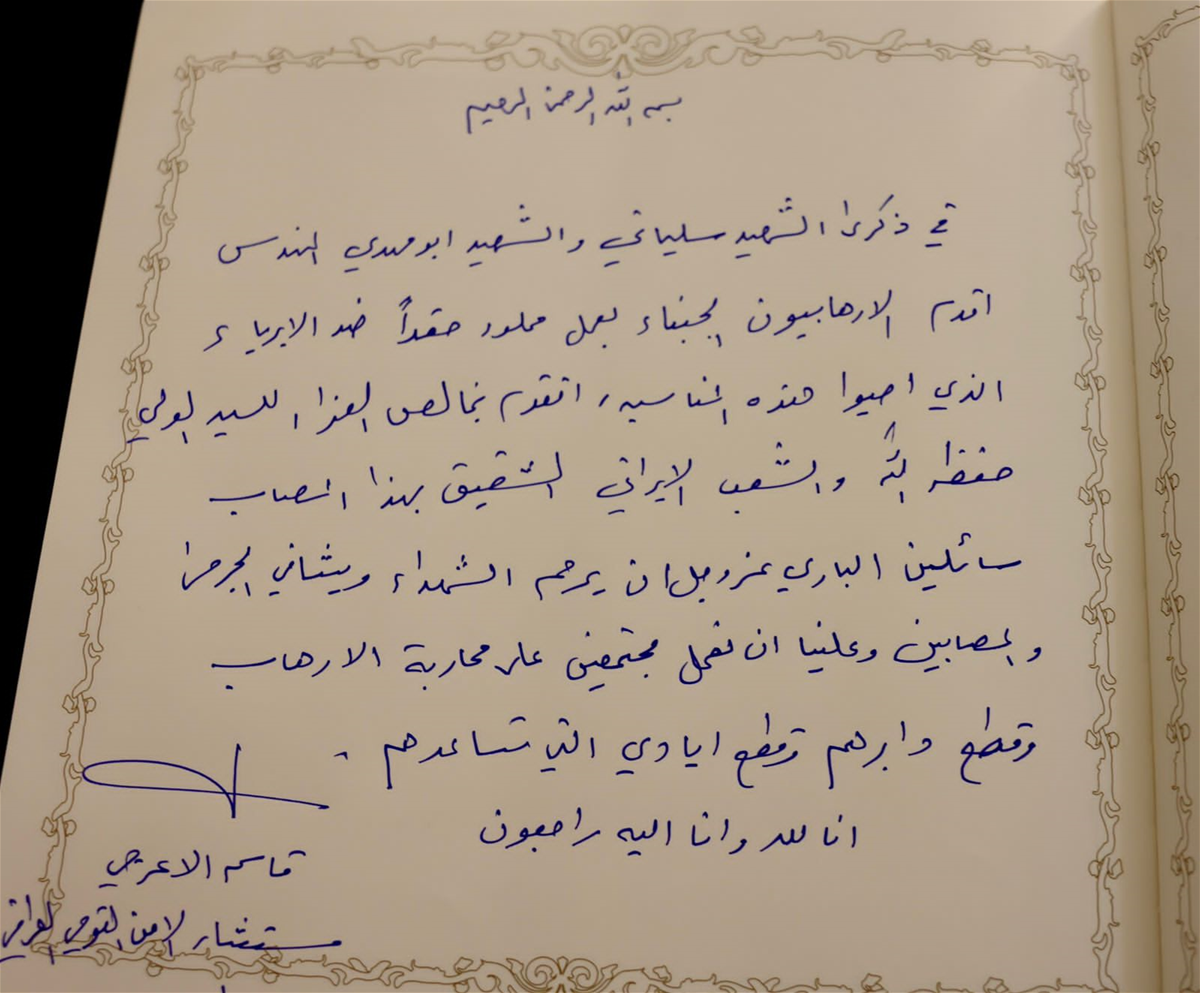 بسم الله الرحمن الرحيم
في ذكرى الشهيد سليماني والشهيد ابو مهدي المهندس
اقدم الارهابيون الجبناء بعمل مملوء حقداً ضد الابرياء
الذي احيوا هذه المناسبه، اتقدم بخالص العزاء للسيد الولي
حفظه الله والشعب الايراني الشقيق بهذا المصاب
سائلين الباري عز وجل ان يرحم الشهداء ويشافي الجرحى
والمصابين وعلينا ان نعمل مجتمعين على محاربة الارهاب
وقطع دابرهم وقطع ايادي التي تساعدهم .
انا لله وانا اليه راجعون
قاسم الاعرجي
مستشار الامن القومي العراقي